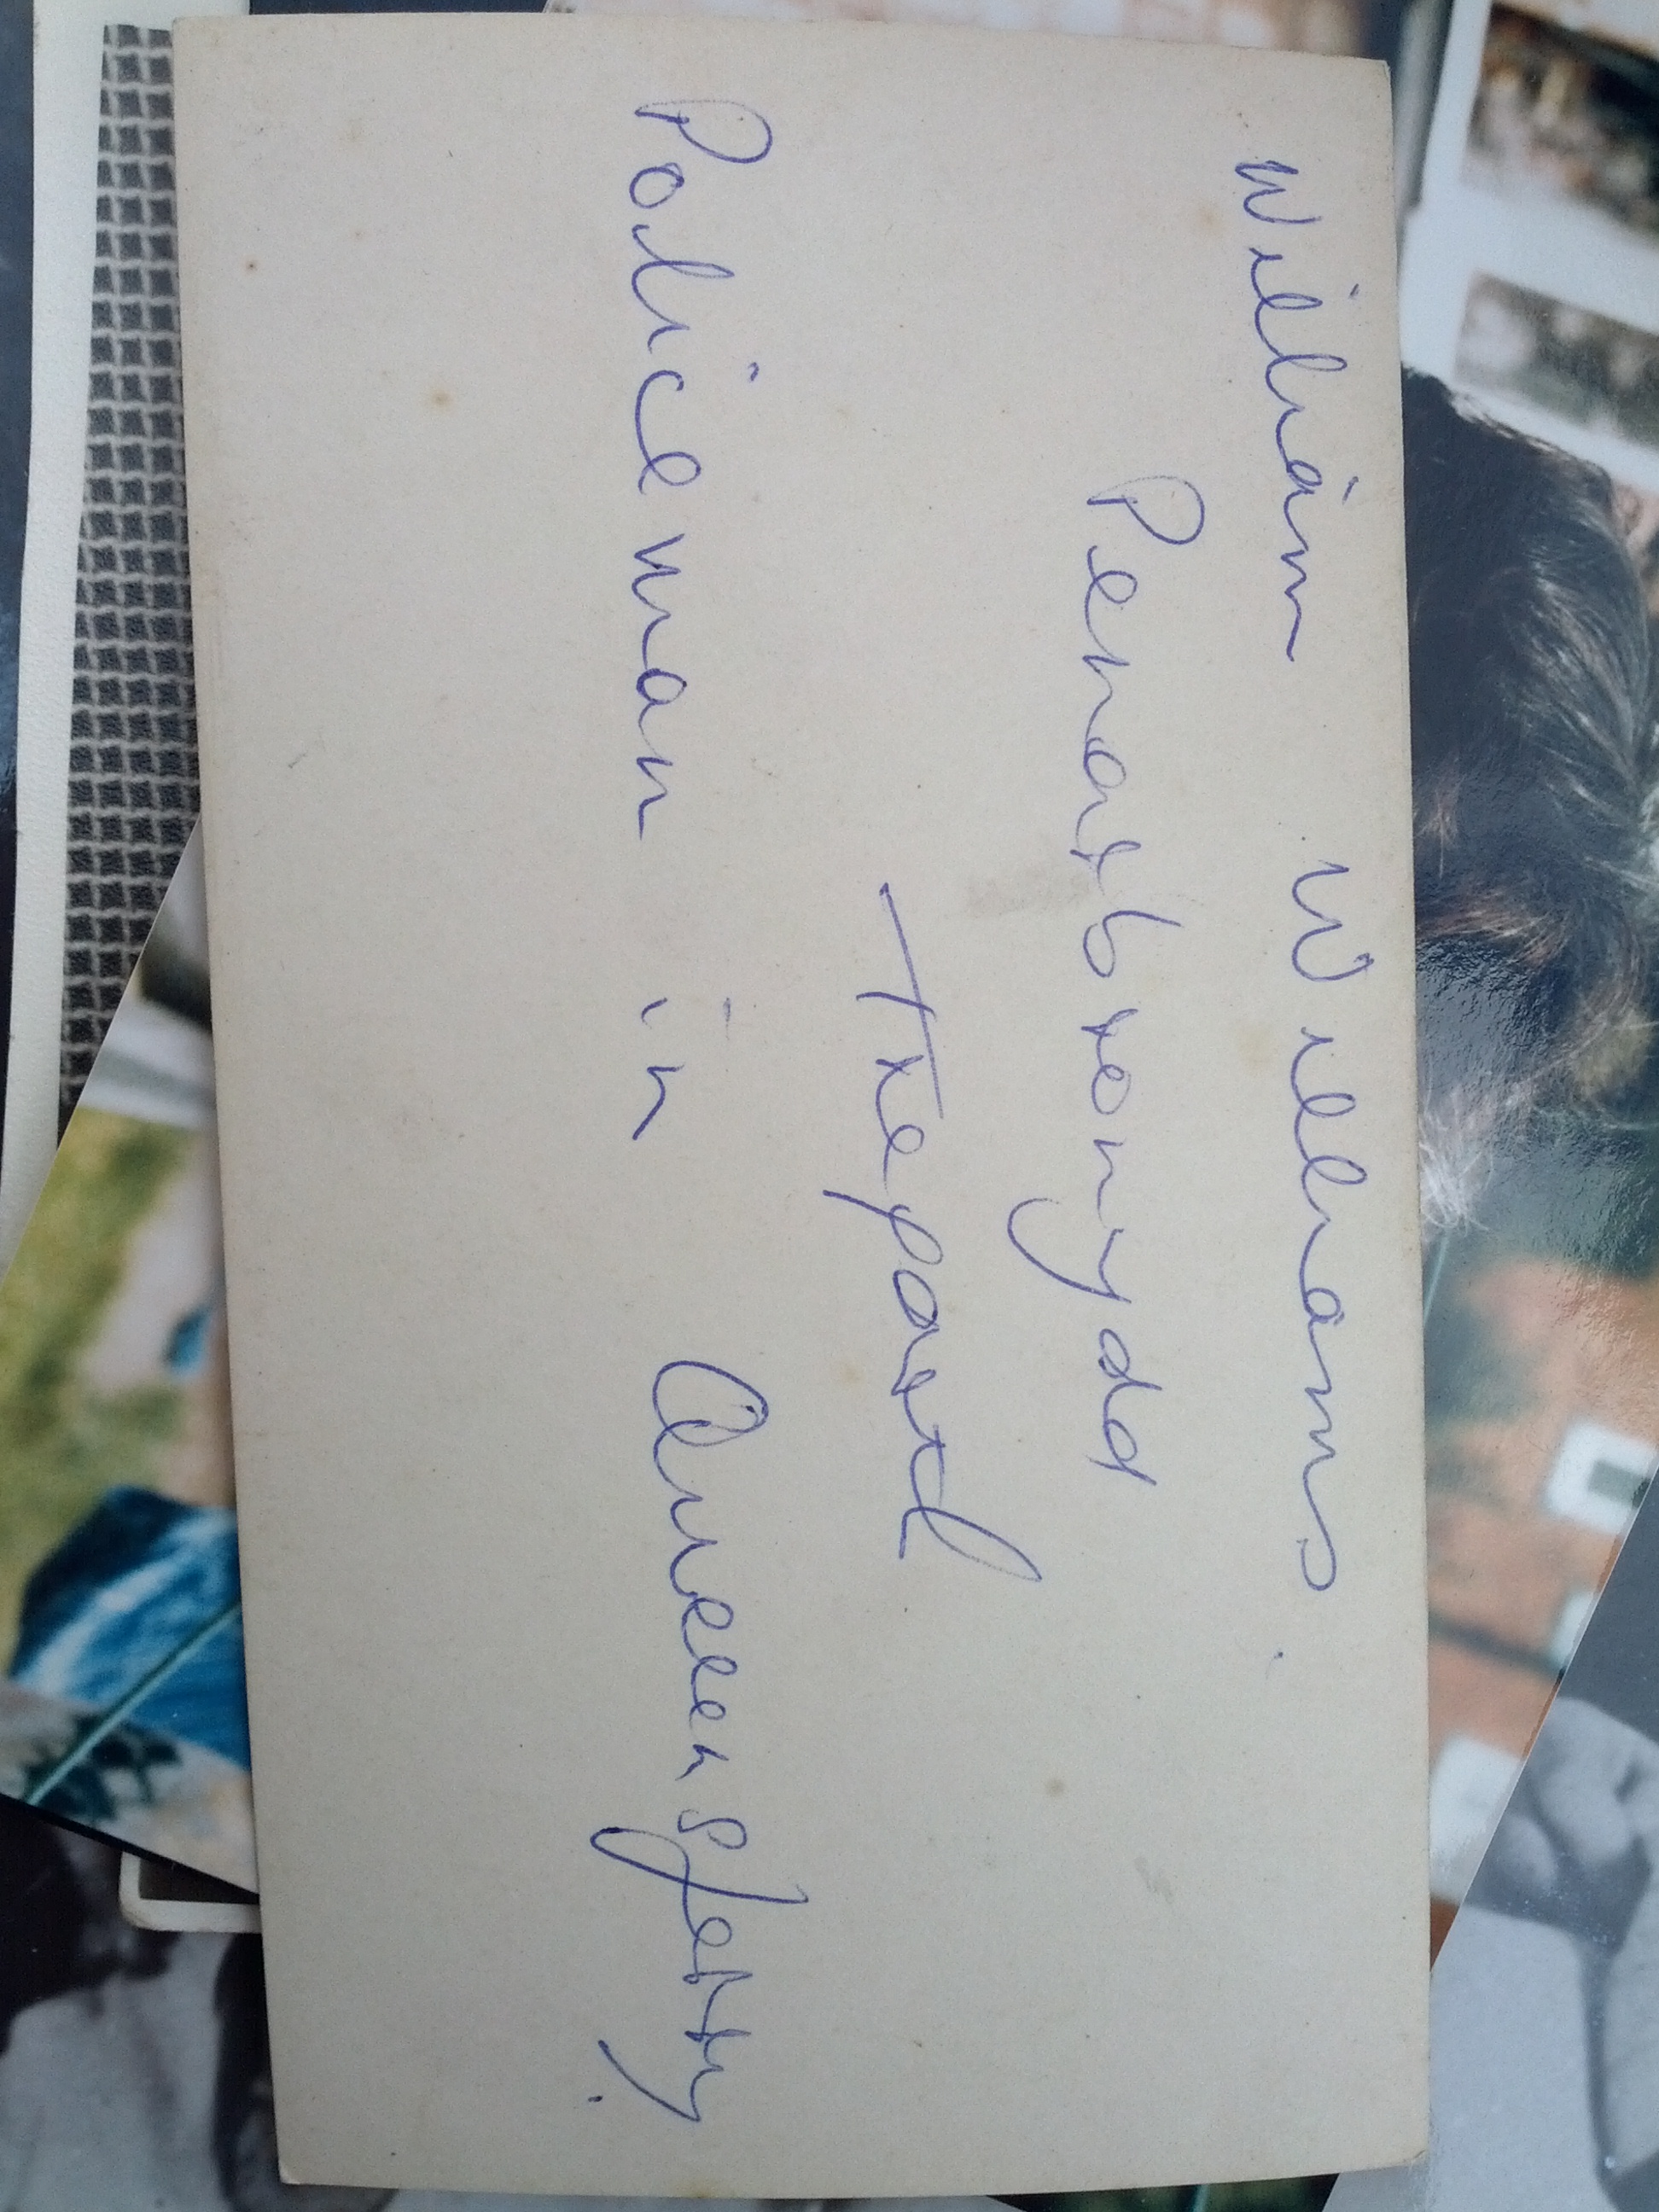 William Williams.
Penarbronydd
Tregarth
Policeman in Queensferry.